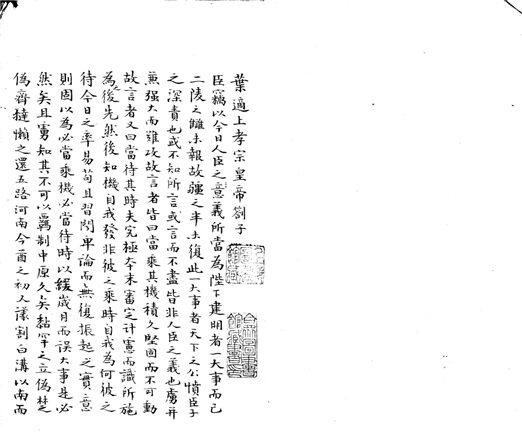 葉適上孝宗皇帝劄子
臣竊以今日人臣之意義所當為陛下建明者一大事而已
二陵之讎未報故疆之半未復此一大事者天下之公憤臣子
之深責也或不知所言或言而不盡皆非人臣之義也虜并
兼强大而難攻故言者皆曰當乘其機積久堅固而不可動
故言者又曰當待其時夫究極本末審定計慮而識所施
為後先然後知機自我發非彼之乘時自我為何彼之
待今日之率易苟且習聞卑論而無復振起之實意
則固以為必當乘機必當待時以緩歲月而誤大事是必
然矣且虜知其不可以羈制中原久矣黏罕之立偽楚
偽齊撻懶之還五路河南今酋之初人議割白溝以南而